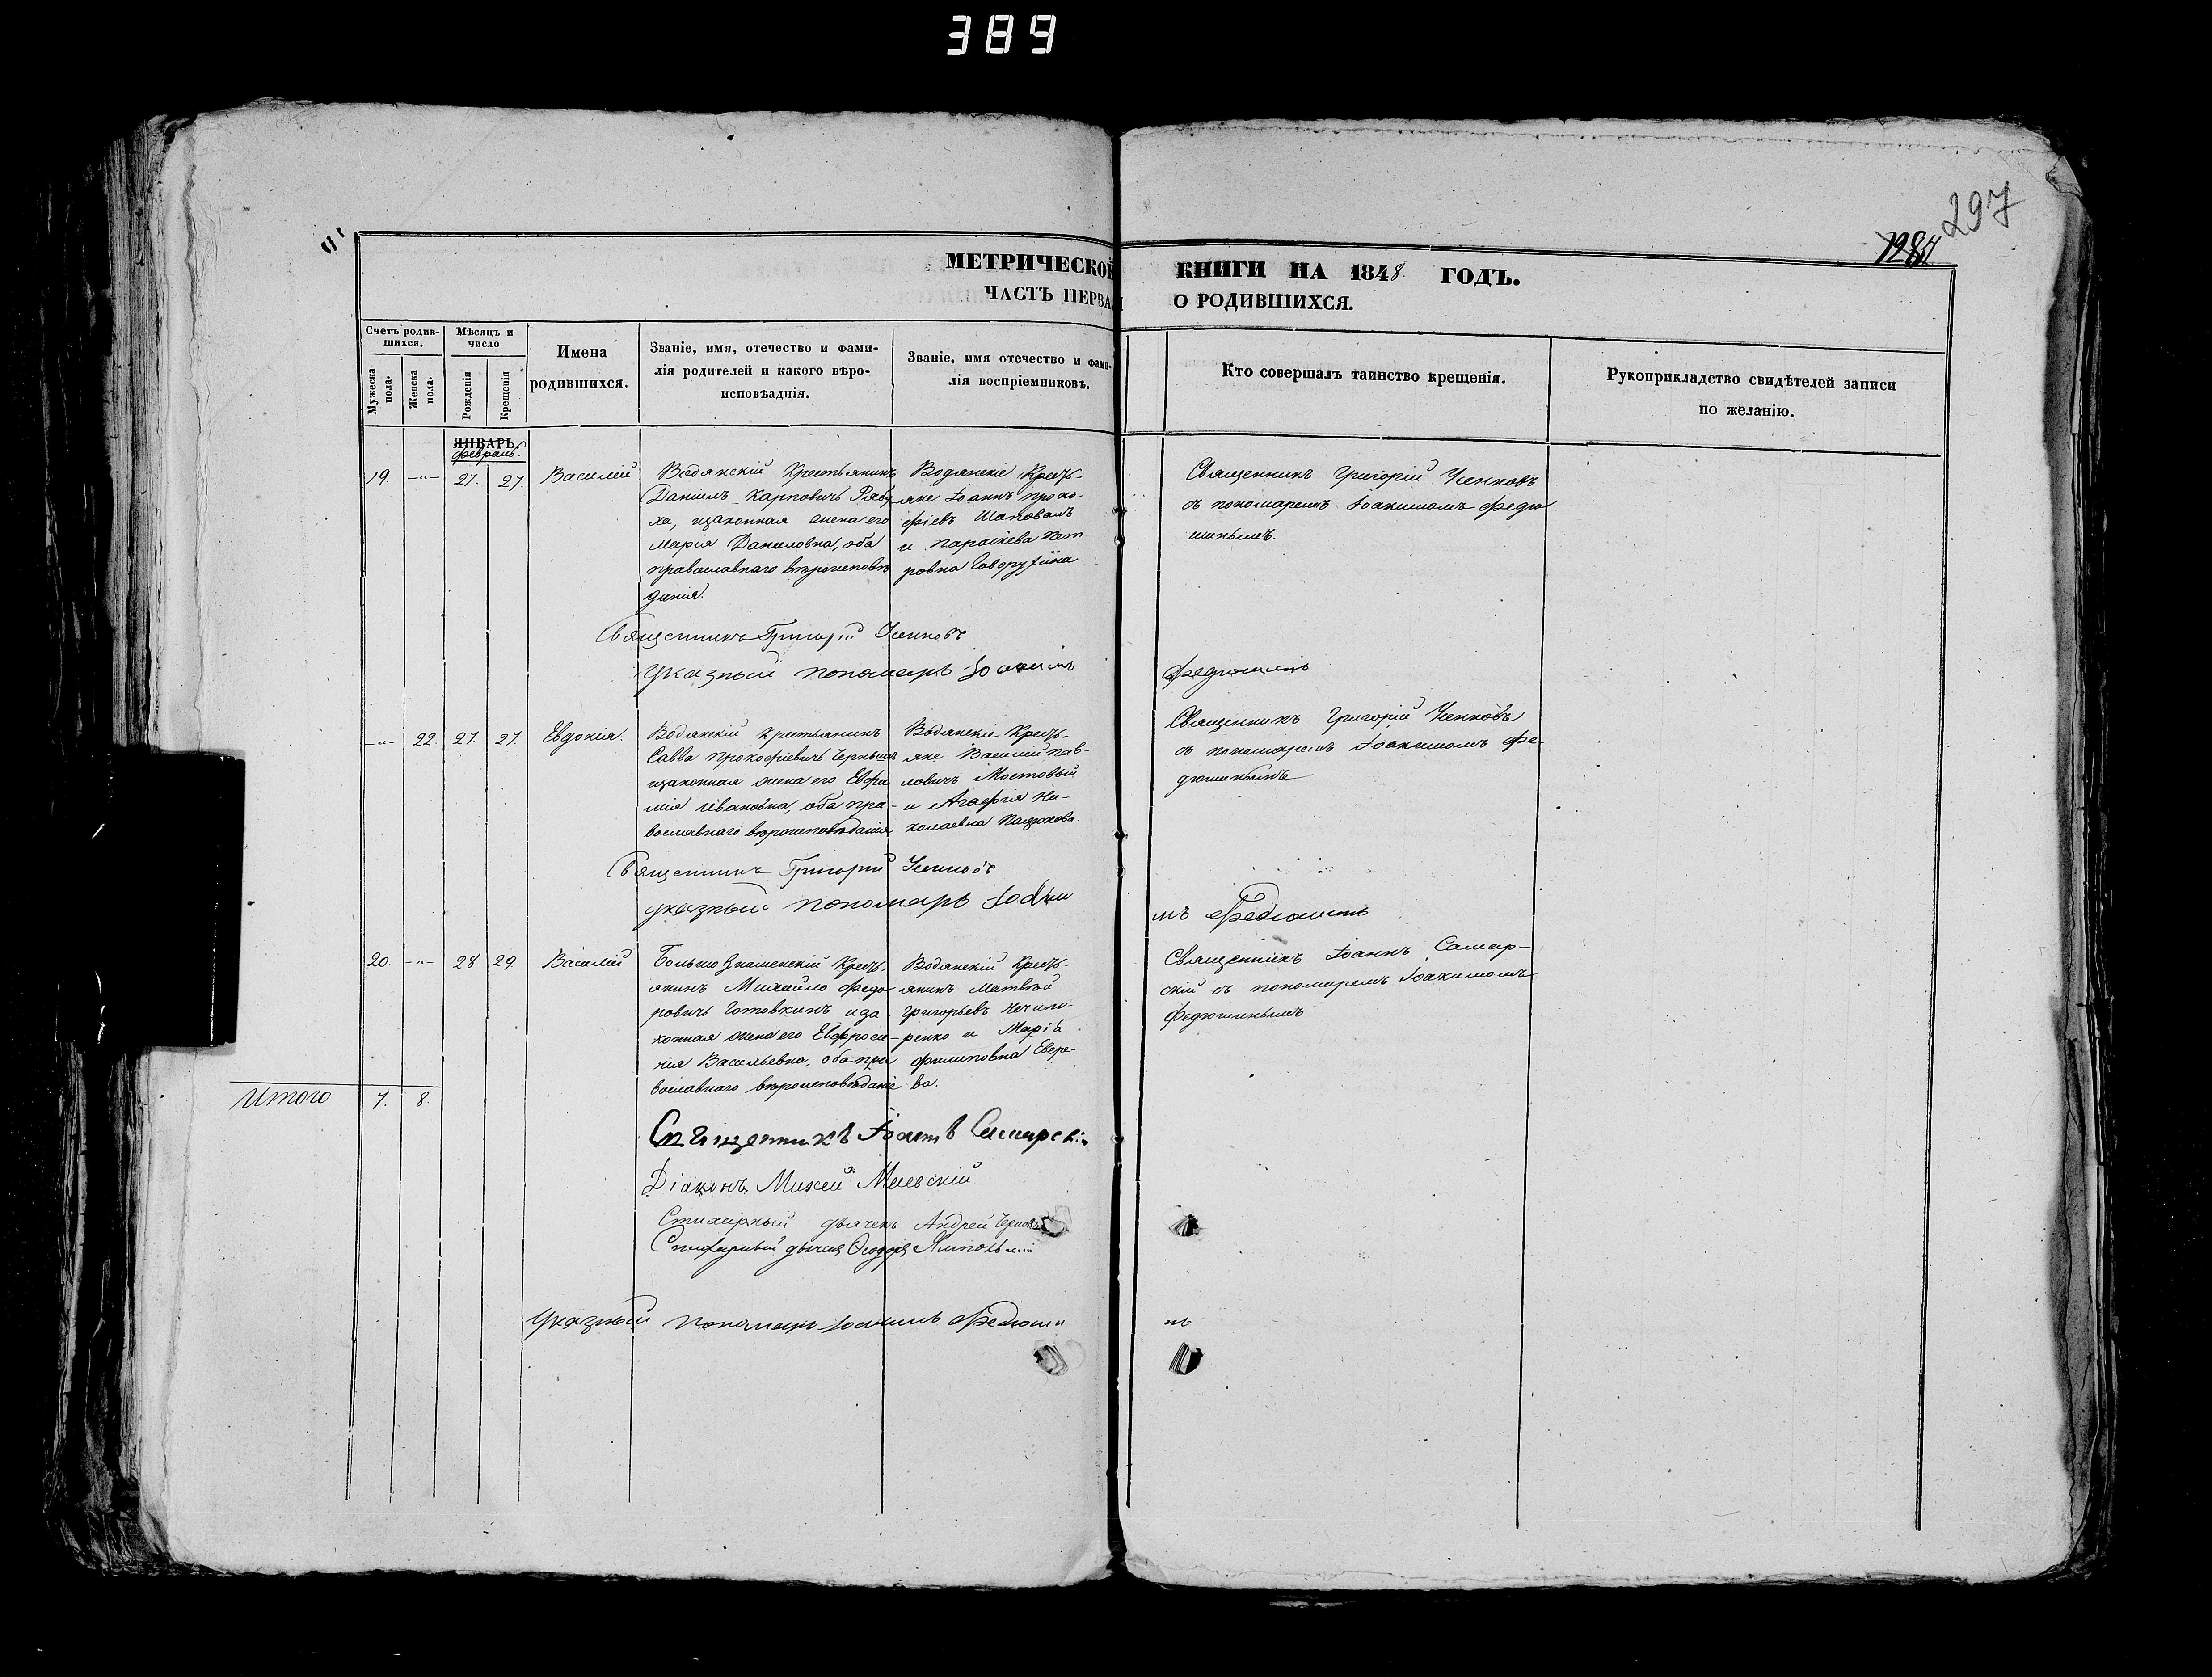 389
297
МЕТРИЧЕСКОЙ КНИГИ НА 1848 ГОДЪ.
ЧАСТЬ ПЕРВАЯ О РОДИВШИХСЯ.
Счетъ родив-
шихся.
Мужеска
пола.
Женска
пола.
Мѣсяцъ и
число
Рожденія
Крещенія
Имена
родившихся.
Званіе, имя, отечество и фами-
лія родителей и какого вѣро-
исповѣаднія.
Званіе, имя отечество и фами-
лія воспріемниковъ.
Кто совершалъ таинство крещенія.
Рукоприкладство свидѣтелей записи
по желанію.
ЯНВАРЬ.
февраль.
19. -"- 27. 27. Василій
Водянскій крестьянинъ
Даніилъ Карповичъ Рябу
ха, изаконная жена его
Марія Даниловна, оба
православнаго вѣроисповѣ
данія.
Водянскіе Кресть-
яне Іоаннъ Проко-
фіевъ Шаповалъ
и Параскева Пет
ровна
Священникъ Григорій
съ пономаремъ Іоакимомъ Федю
шинымъ.
Священникъ Григорій
Указный пономарь Іоакимъ Федюшинъ
-"- 22. 27. 27. Евдокія.
Водянскій крестьянинъ
Савва Прокофіевичъ
изаконная жена его Евфи
мія Ивановна, оба пра-
вославнаго вѣроисповѣданія
Водянскіе Кресть-
яне Василій Пав-
ловичъ Мостовый
и Агафія Ни-
колаевна
Священникъ Григорій
съ пономаремъ Іоакимомъ Фе-
дюшинымъ
Священникъ Григорій
указный пономарь Іоакимъ Федюшинъ
20. -"- 28. 29. Василій
Большезнаменскій Кресть-
янинъ Михайло Федо
ровичъ Готовкинъ иза-
конная жена его Евфроси-
нія Васильевна, оба пра
вославнаго вѣроисповѣданія
Водянскій Кресть-
янинъ Матвѣй
Григорьевъ Нечипо-
ренко и Марія
Филиповна Евере-
ва.
Священникъ Іоаннъ Самар-
скій съ пономаремъ Іоакимомъ
Федюшинымъ
Итого 7. 8.
Священникъ Іоаннъ Самарскій
Діаконъ Михей Маевскій
Стихарный дьячекъ Андрей
Стихарный дьячекъ Ѳеодоръ
Указный пономарь Іоакимъ Федюшинъ